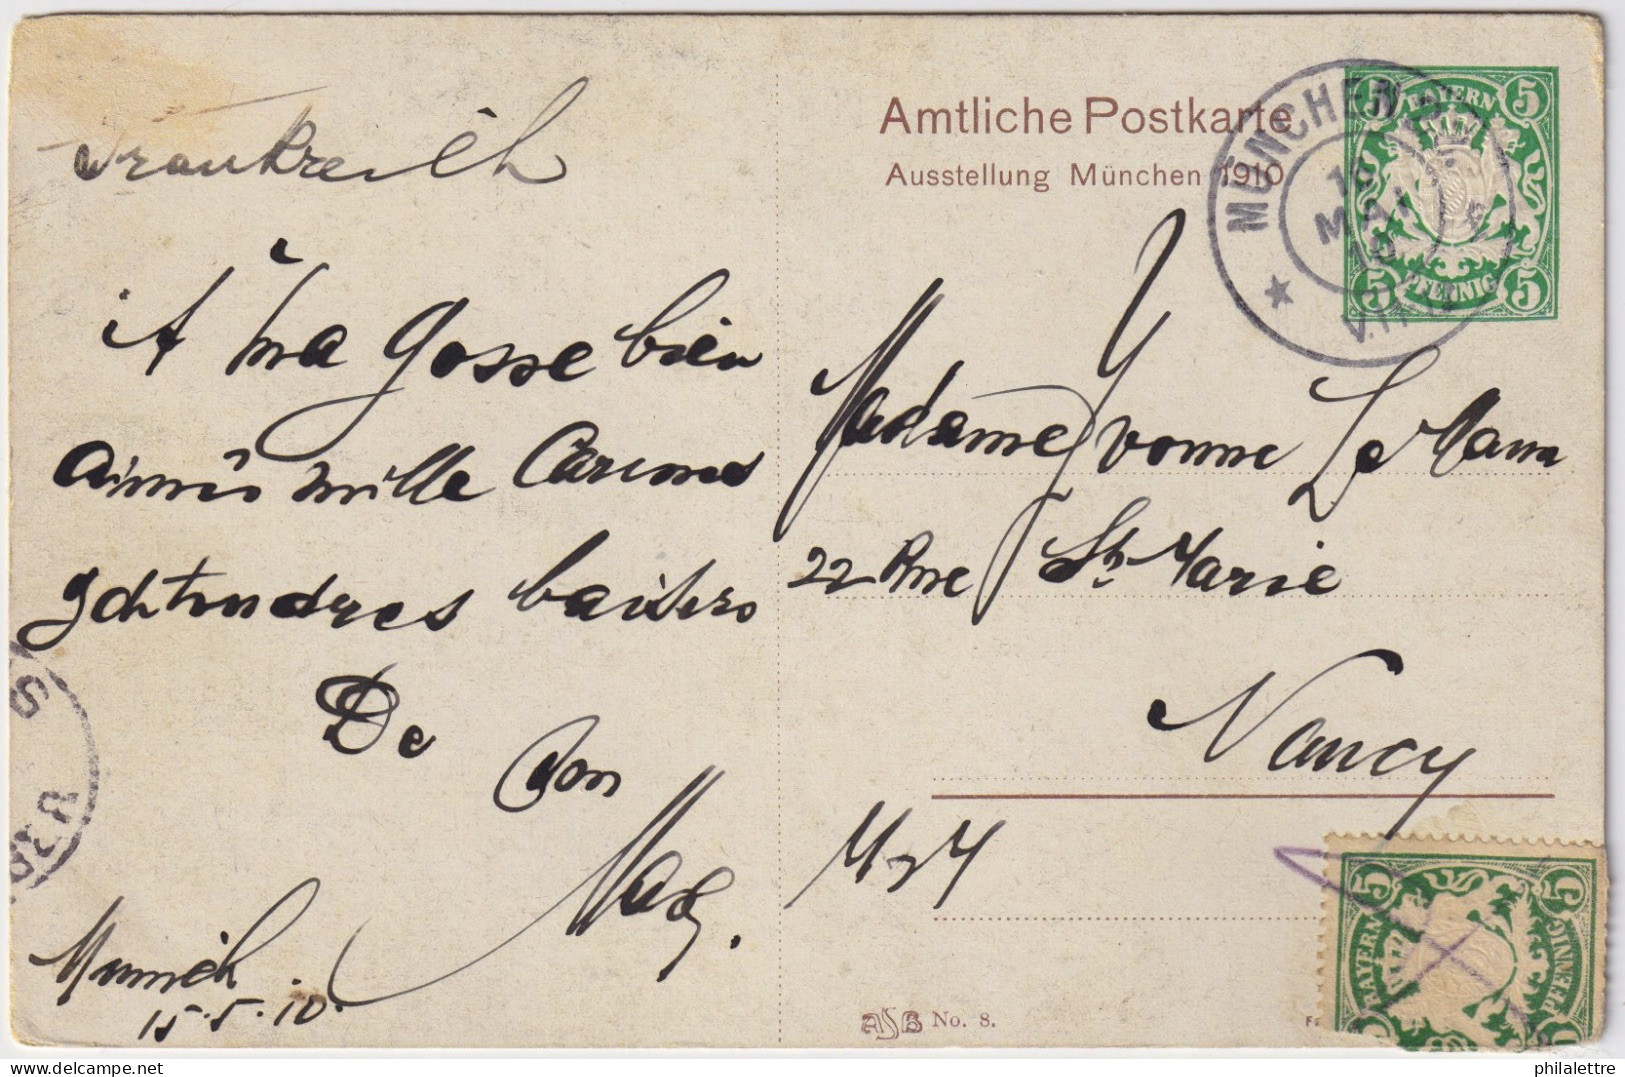 Frankreich
Amtliche Postkarte
Ausstellung München 1910
MÜNCHEN
MAI
5 BAYERN 5
5 PFENNIG 5
A ma Gosse bien
aimée mille Caresses
et tendres baisers
De
ton
Max.
Munich
15.5.10.
Madame Yvonne Le Mann
22 Rue Ste Marie
Nancy
M & M
5 BAYERN 5
PFENNIG
ASB No. 8.
philalettre